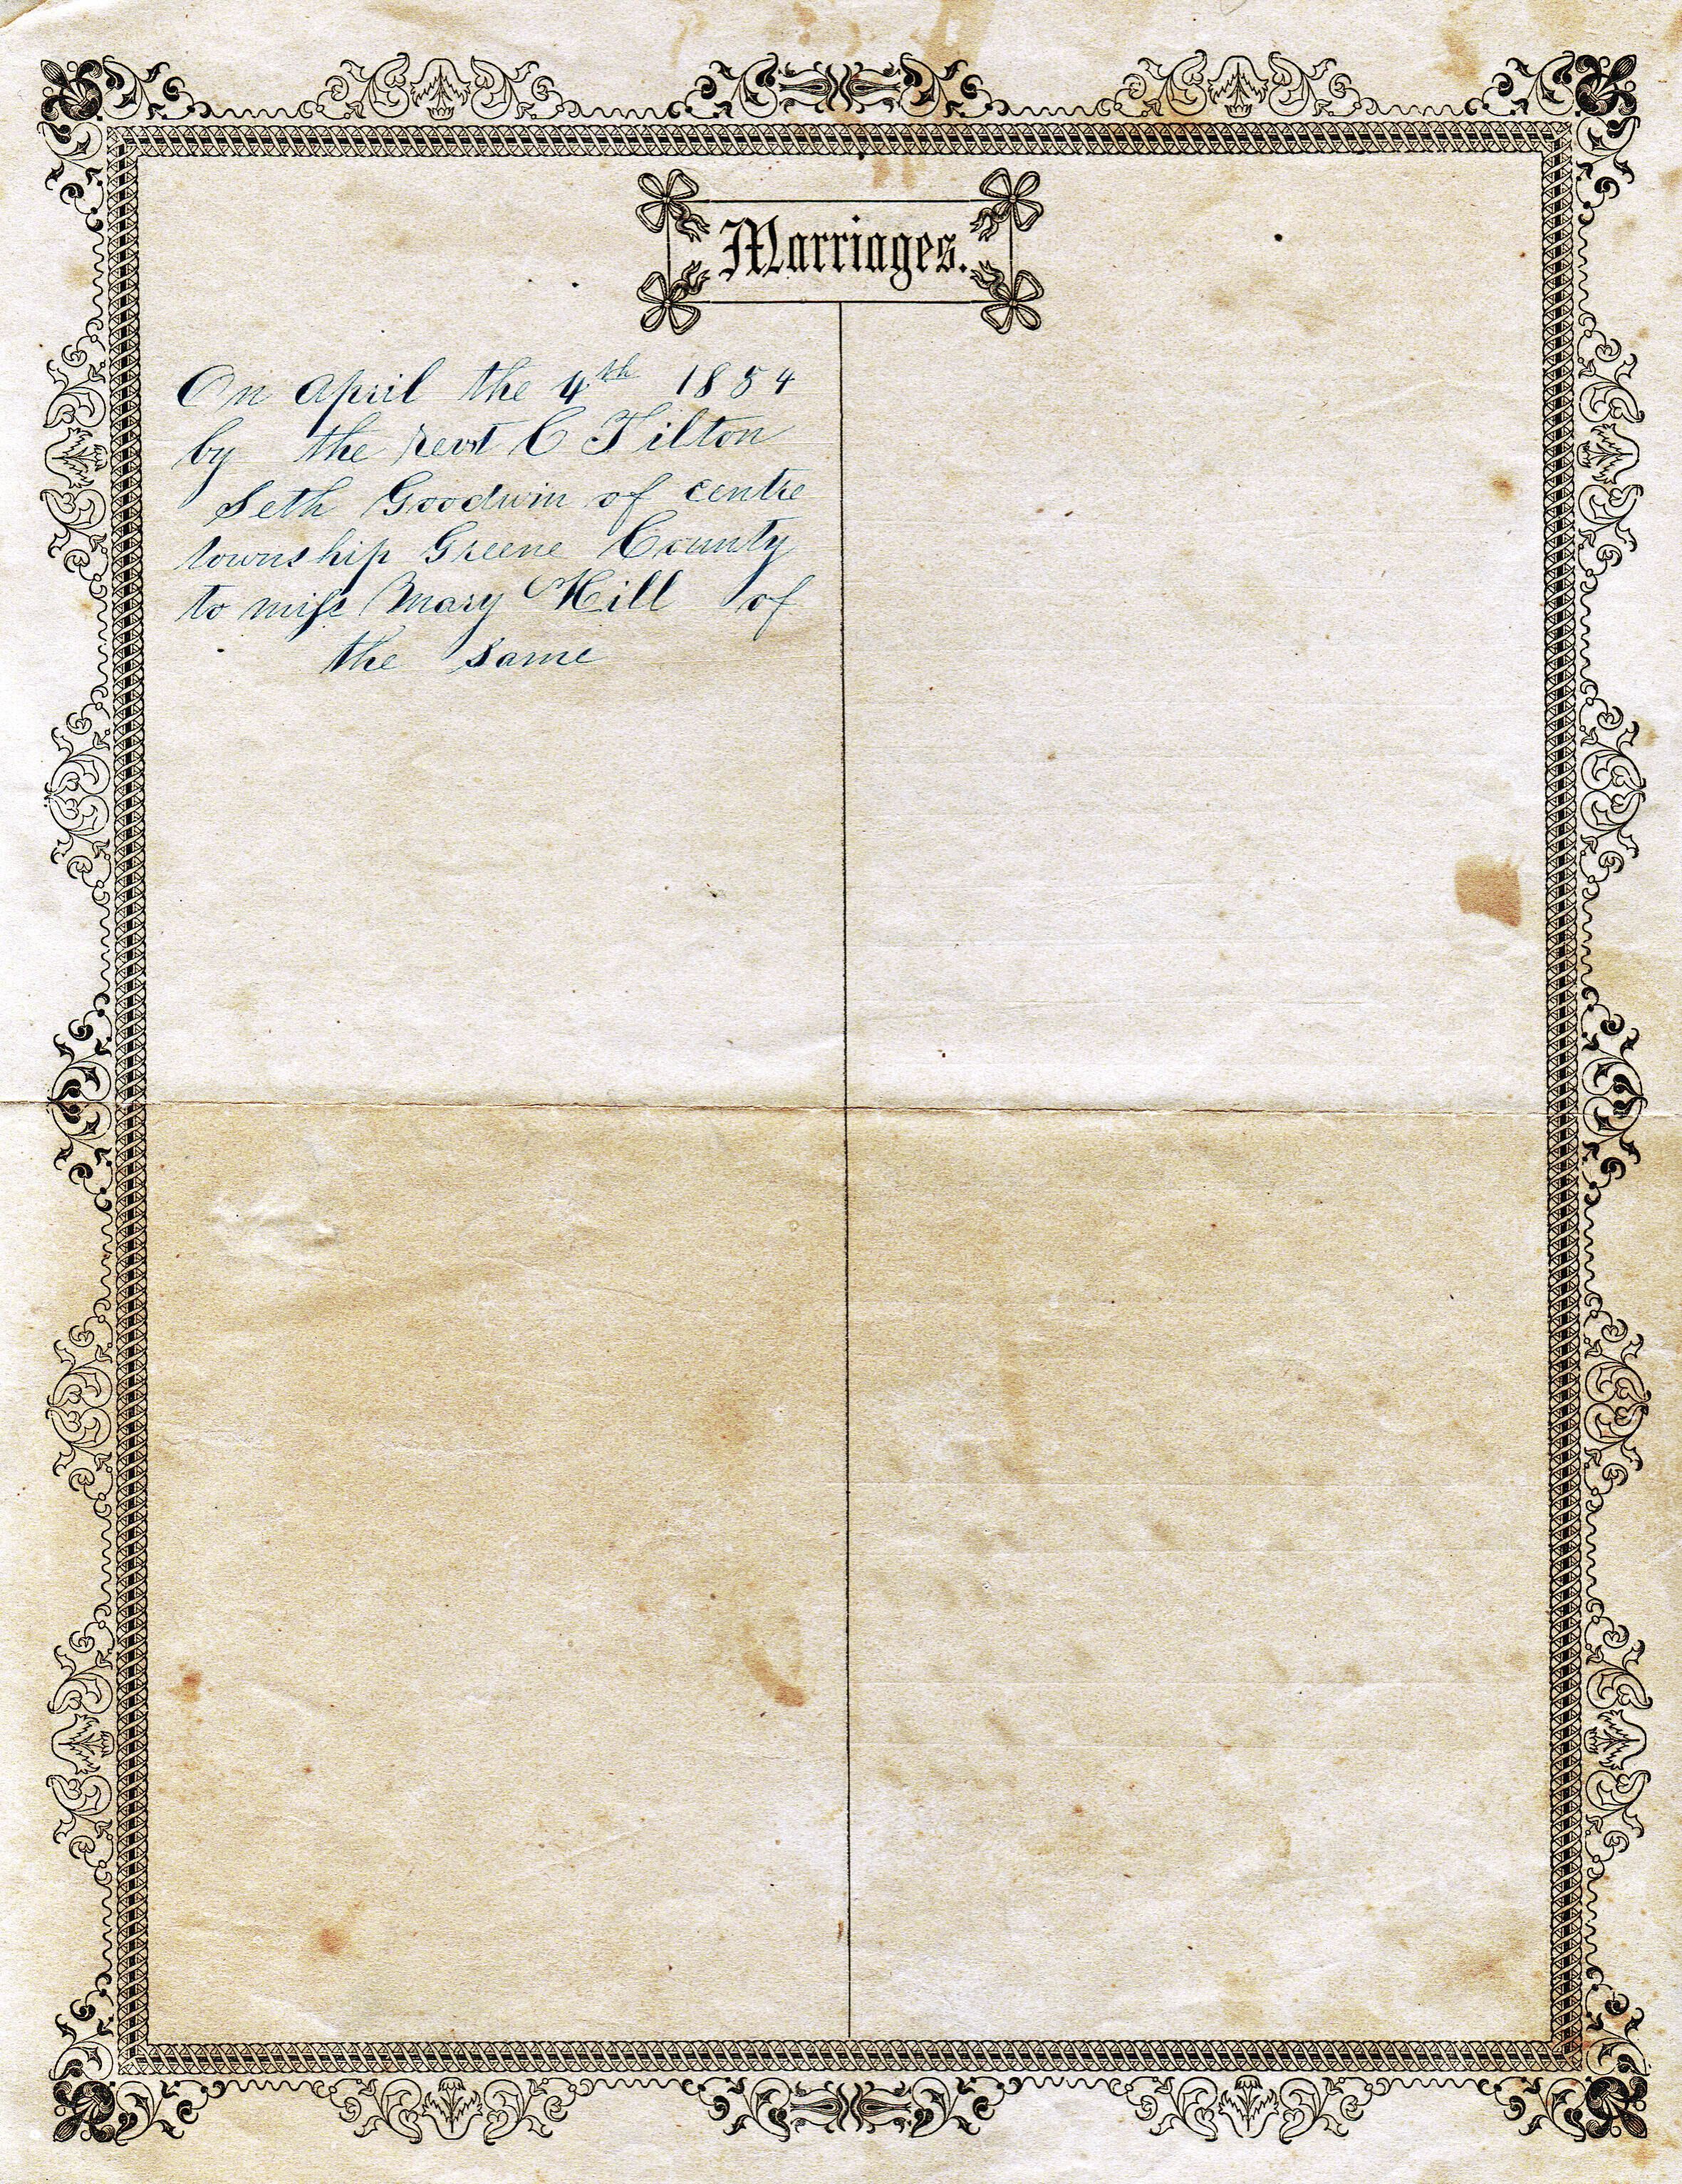 Marriages.
On April the 4th 1854
by the revt C Tilton
Seth Goodwin of centre
township Greene County
to miss Mary Hill of
the Same